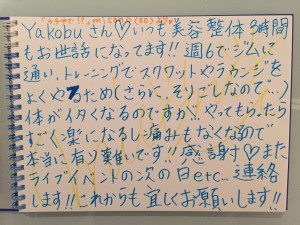 Yakobuさん♡いつも美容整体3時間
もお世話になってます!!週6でジムに
通い、トレーニングでスクワットやラウンジを
よくやるため(さらに、そりごしなので…)
体がイタくなるのですが、やってもらったら
すごく楽になるし痛みもなくなるので
本当に有り難いです!!感謝♡また
ライブイベントの次の日etc…連絡
します!!これからも宜しくお願いします!!